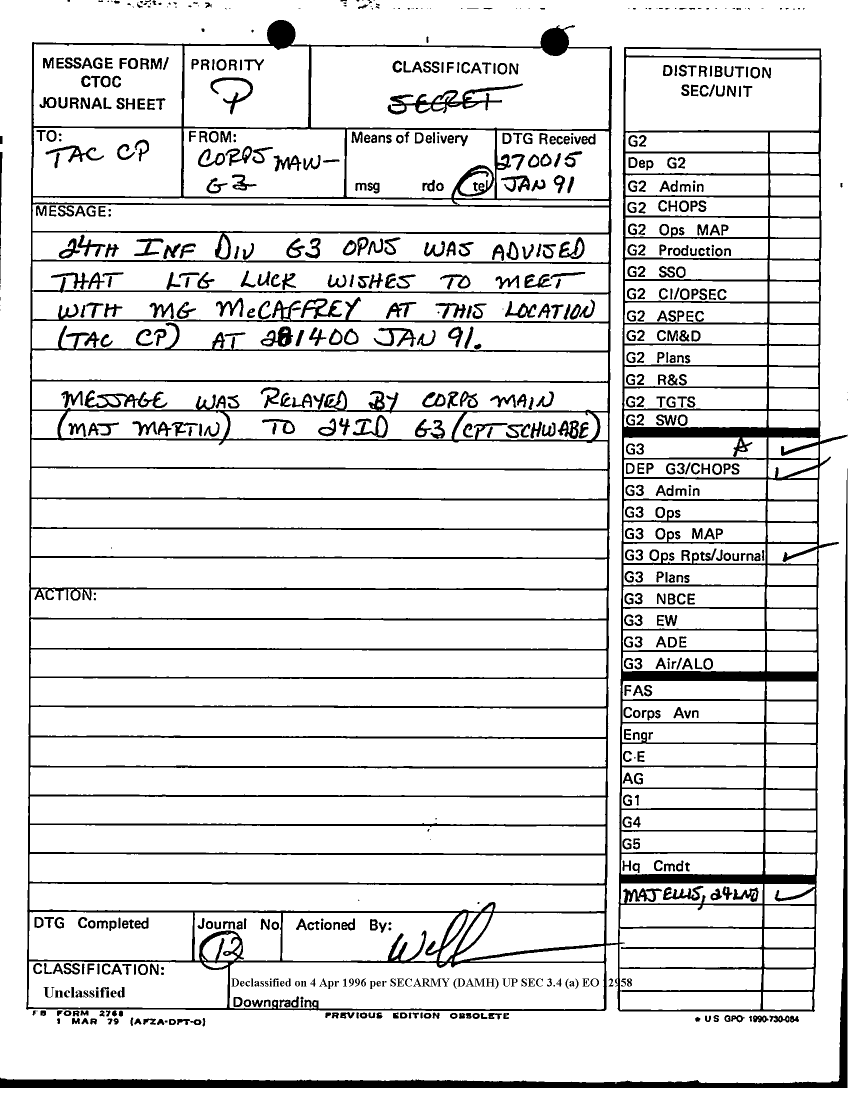 MESSAGE FORM/
CTOC
JOURNAL SHEET
PRIORITY
P
CLASSIFICATION
SECRET
TO:
TAC CP
FROM:
CORPS MAIN-
G3
Means of Delivery
msg rdo tel
DTG Received
270015
JAN 91
MESSAGE:
24TH INF DIV G3 OPNS WAS ADVISED
THAT LTG LUCK WISHES TO MEET
WITH MG McCAFFREY AT THIS LOCATION
(TAC CP) AT 281400 JAN 91.
MESSAGE WAS RELAYED BY CORPS MAIN
(MAJ MARTIN) TO 24ID G3 (CPT SCHWABE)
ACTION:
DTG Completed
Journal No.
12
Actioned By:
CLASSIFICATION:
Unclassified
Declassified on 4 Apr 1996 per SECARMY (DAMH) UP SEC 3.4 (a) EO 12958
Downgrading
FB FORM 2768
1 MAR 79 (AFZA-DPT-O)
PREVIOUS EDITION OBSOLETE
DISTRIBUTION
SEC/UNIT
G2
Dep G2
G2 Admin
G2 CHOPS
G2 Ops MAP
G2 Production
G2 SSO
G2 CI/OPSEC
G2 ASPEC
G2 CM&D
G2 Plans
G2 R&S
G2 TGTS
G2 SWO
G3 A
DEP G3/CHOPS
G3 Admin
G3 Ops
G3 Ops MAP
G3 Ops Rpts/Journal
G3 Plans
G3 NBCE
G3 EW
G3 ADE
G3 Air/ALO
FAS
Corps Avn
Engr
C-E
AG
G1
G4
G5
Hq Cmdt
MAJ ELLIS, 24
US GPO 1990-730-084